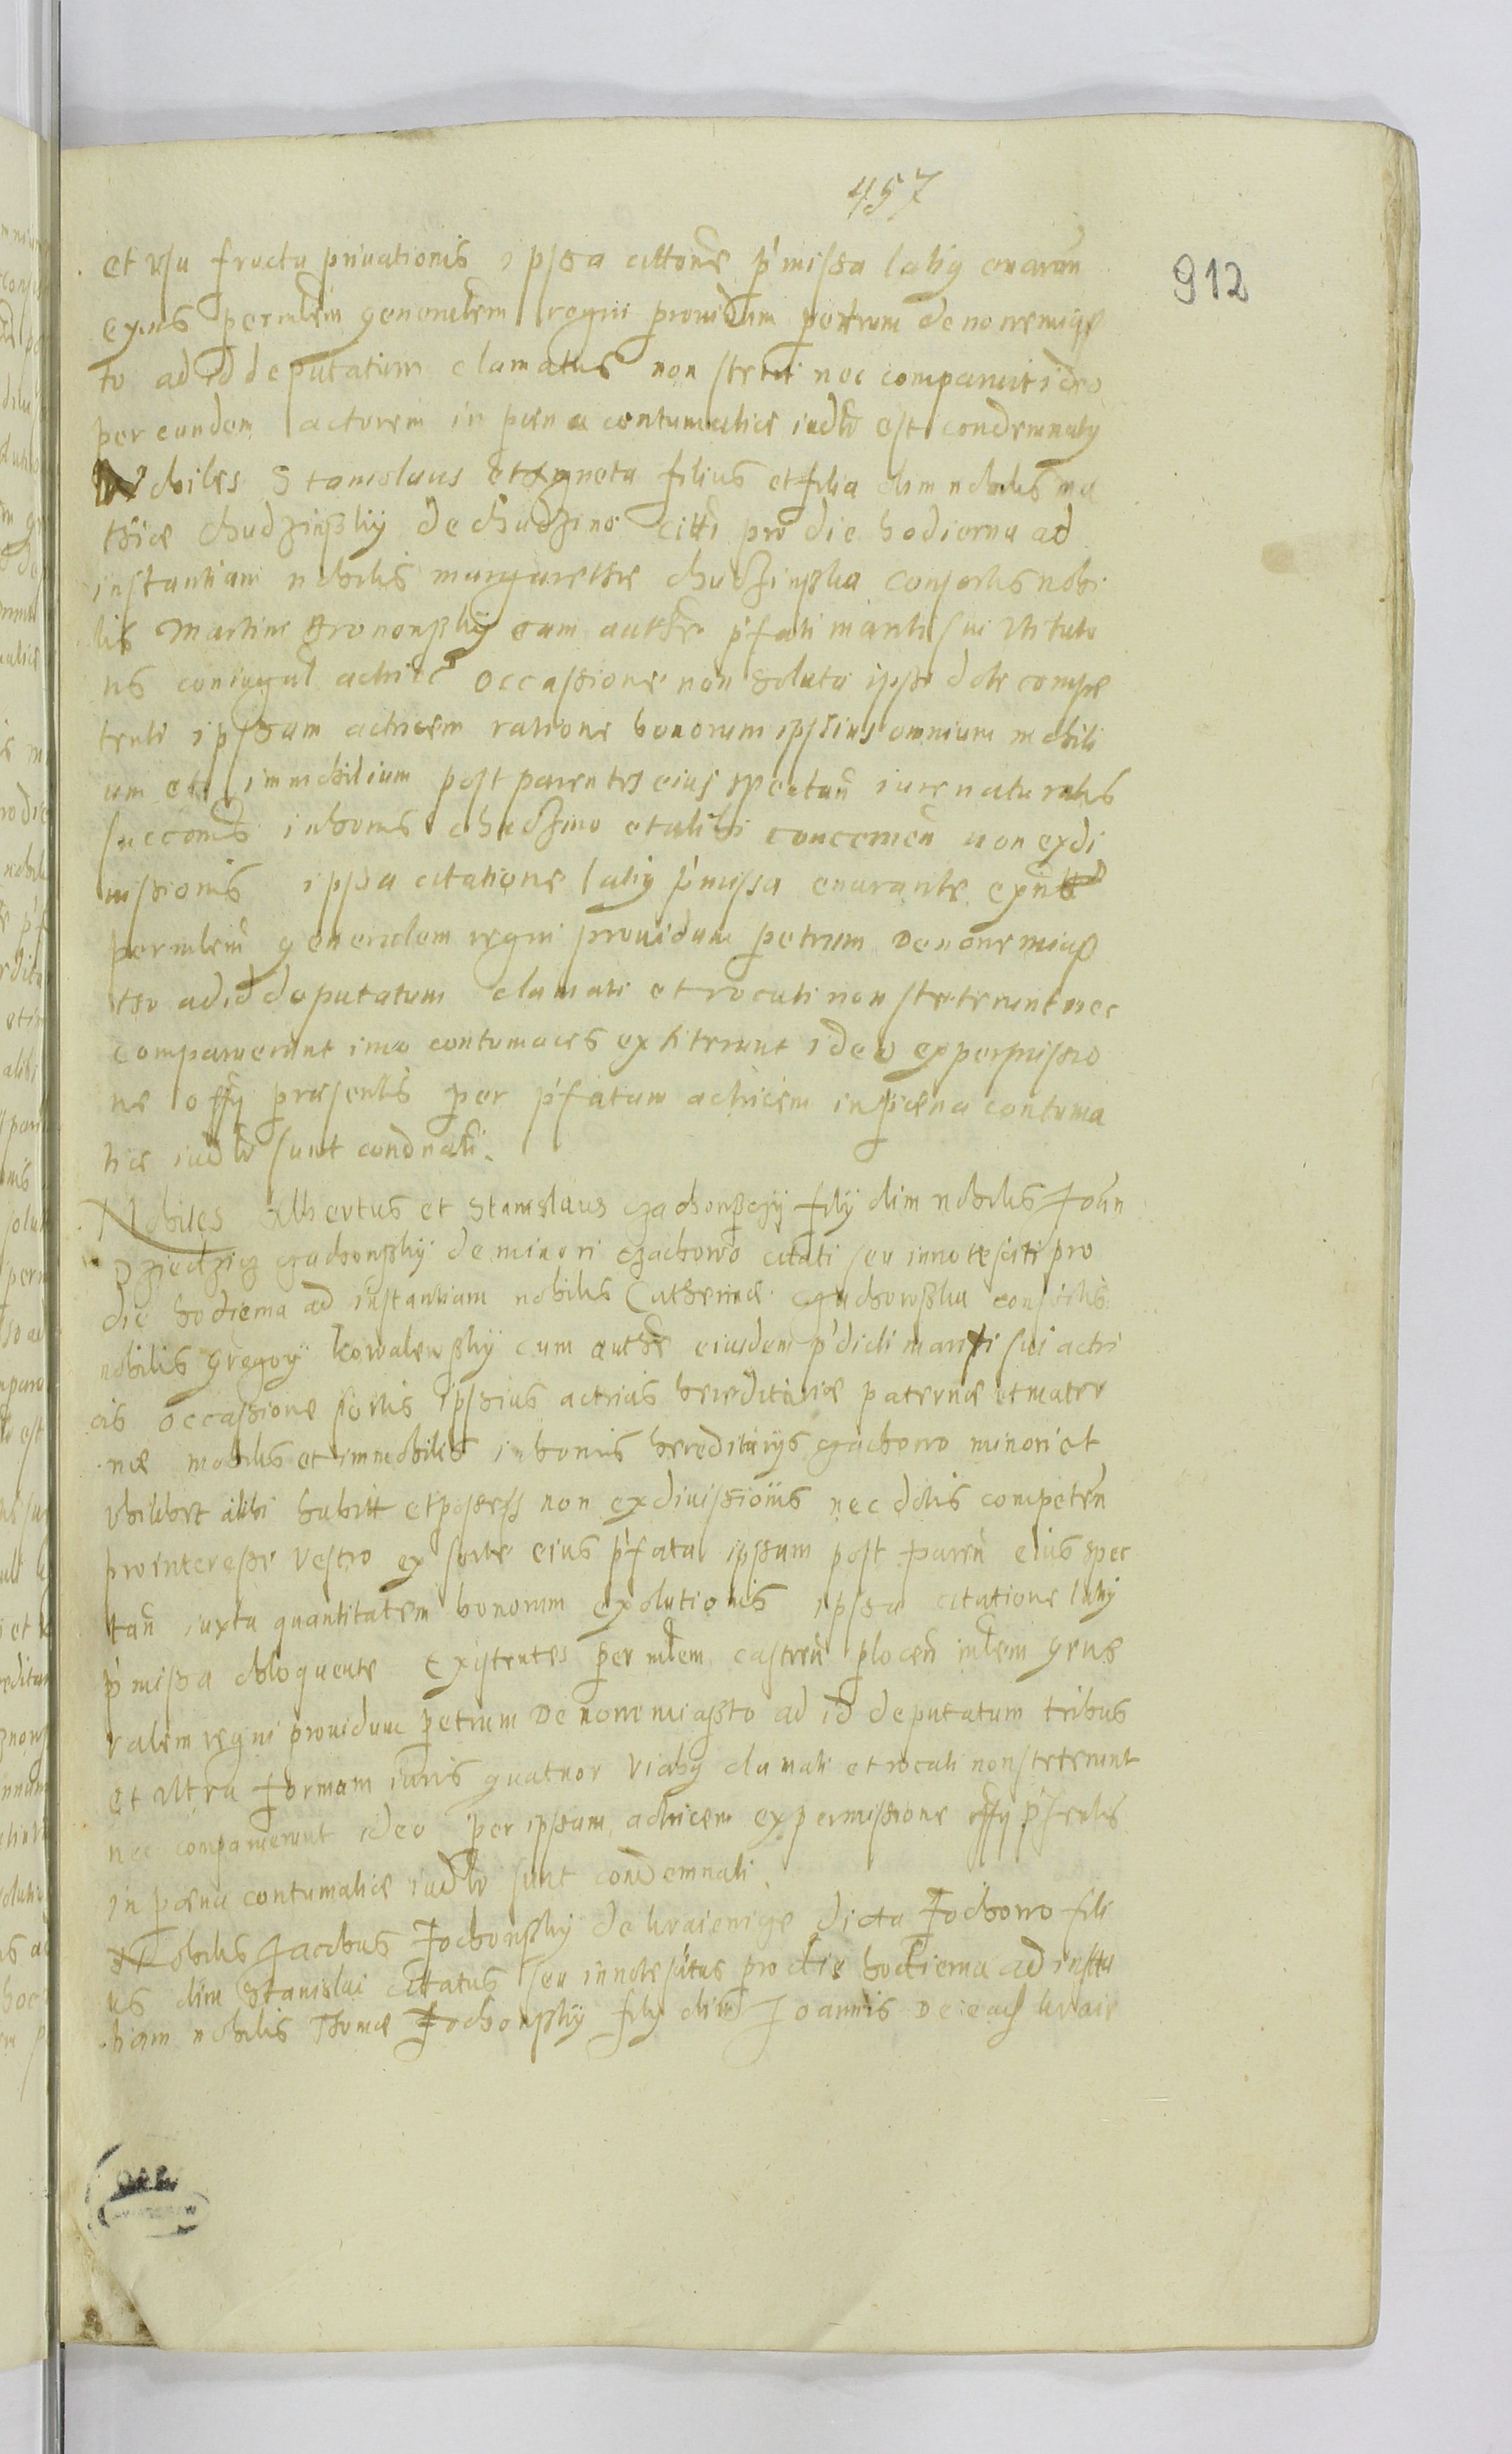 457
912
et vsu fructu priuationis ipssa cittone pmissa latiq enaran
exns per mlem generalem regni prouidum petrum de nowemiąs
to ad id deputatum clamatus non stetit nec comparuit ideo
per eundem actorem in pæna contumaticæ iudtr est condemnatq
Nobiles Stanislaus et Agneta filius et filia olim nobilis ma
thiæ chudzinßkÿ de chudzino citti pro die hodierna ad
instantiam nobilis margarethæ chudzinßka consortis nobi
lis Martini Grononßkÿ cum authte pfati mariti sui vti tuto
ris coniugal actric occassione non soluto ipssi dote compe
tenti ipssam actricem ratione bonorum ipssius omnium mobili
um et immobilium post parentes eius spectan iure naturalis
succonis in bonis chudzino et alibi concernen non exdi
uissionis ipssa citatione latiq pmissa enarante exntes
per mlem generalem regni prouidum petrum de nowemiaß
tho ad id deputatum clamati et vocati non steterunt nec
comparuerunt imo contumaces extiterunt ideo ex permissio
ne offÿ præsentis per pfatam actricem in pæna contuma
tiæ iudtr sunt condnati.
Nobiles Albertus et Stanislaus czachowßczÿ filÿ olim nobilis Joan
Dziedzicz czachowßkÿ de minori czachowo citati seu innotesciti pro
die hodierna ad instantiam nobilis Catherinæ czachowßka consortis
nobilis Gregorÿ kowalewßkÿ cum authte eiusdem pdicti mariti sui actri
cis occassione sortis ipssius actricis hereditariæ paternæ et mater
næ mobilis et immobilis in bonis hereditarÿs czachowo minori et
vbilibet alibi habitt et possess non exdiuissionis nec dotis competen
pro interesse vestro ex sorte eius pfata ipssam post paren eius spec
tan iuxta quantitatem bonorum exolutionis ipssa citatione latiq
pmissa obloquente existentes per mlem castren plocen mlem gene
ralem regni prouidum petrum de nowemiaßto ad id deputatum tribus
et vltra formam iuris quatuor vicibq clamati et vocati non steterunt
nec comparuerunt ideo per ipssam actricem ex permissione offÿ pßentis
in pæna contumatiæ iudtr sunt condemnati.
Nobilis Jacobus Jochowßkÿ de kraienige dicta Jochowo fili
us olim Stanislai citatus seu innotescitus pro die hodierna ad insta
tiam nobilis Thomæ Jochowßkÿ filÿ olim Joannis de eads kraie